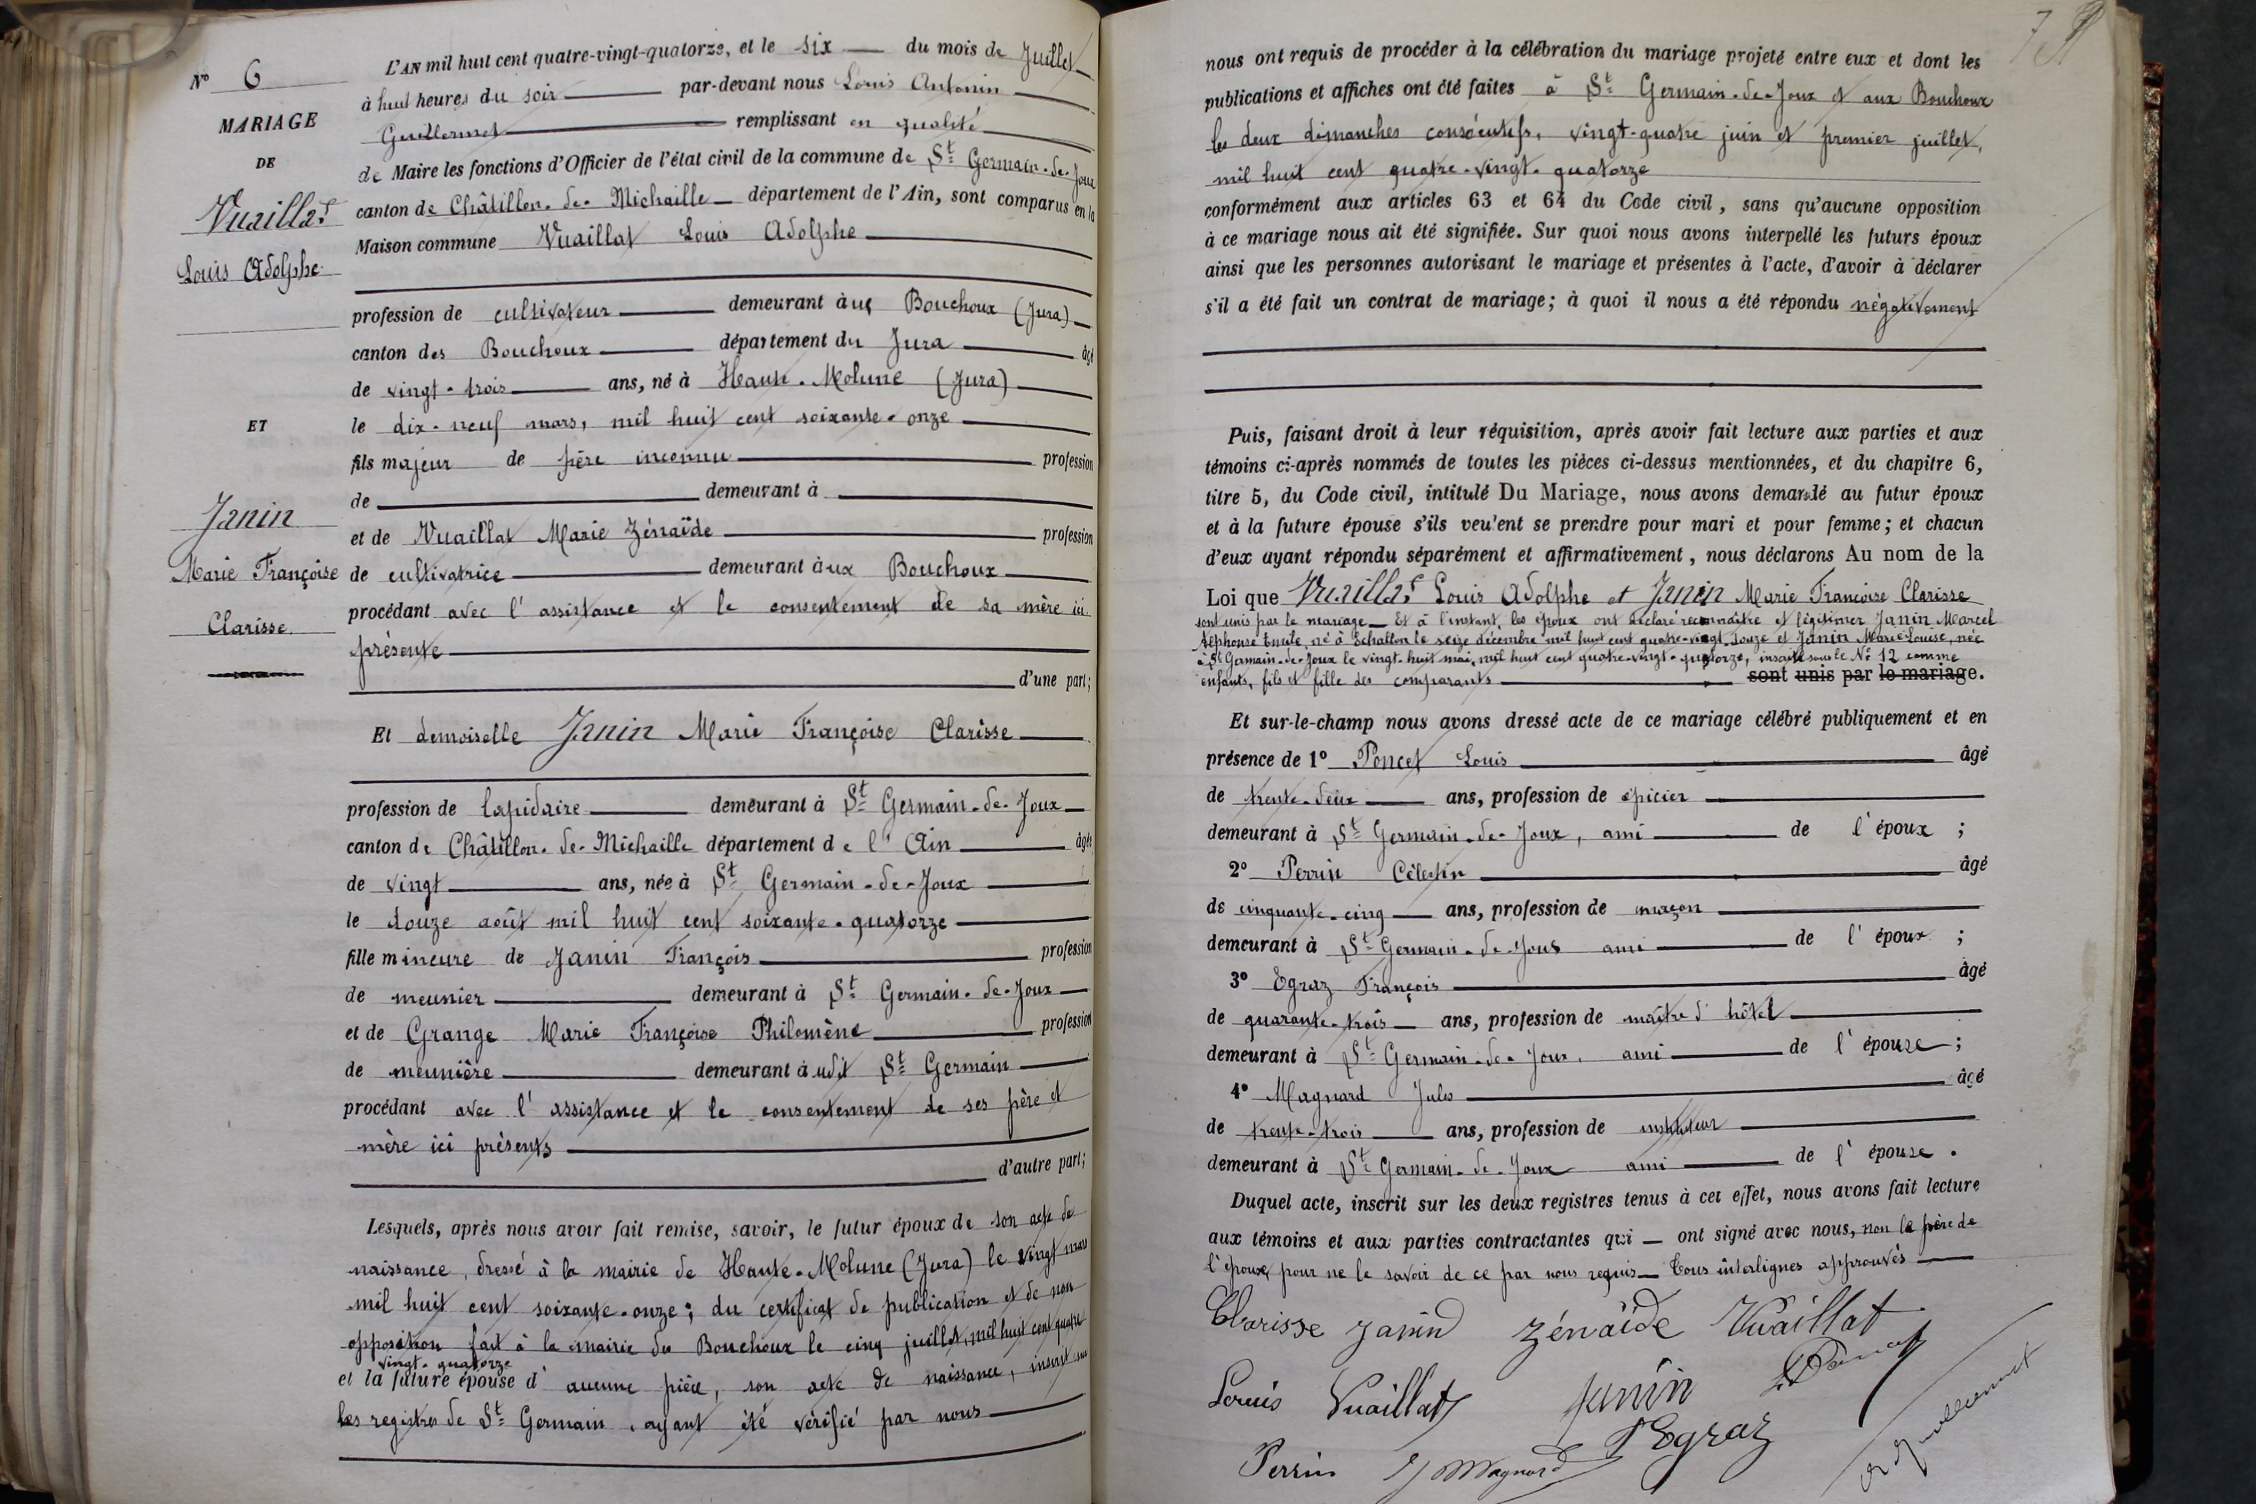 N° 6
MARIAGE
DE
Vuaillat
Louis Adolphe
ET
Janin
Marie Françoise
Clarisse
L'AN mil huit cent quatre-vingt-quatorze, et le six du mois de Juillet
à huit heures du soir par-devant nous Louis Antonin
Guillermet remplissant en qualité
de Maire les fonctions d'Officier de l'état civil de la commune de St Germain-de-Joux
canton de Châtillon-de-Michaille département de l'Ain, sont comparus en la
Maison commune Vuaillat Louis Adolphe
profession de cultivateur demeurant à ux Bouchoux (Jura)
canton des Bouchoux département du Jura âgé
de vingt-trois ans, né à Haute-Molune (Jura)
le dix-neuf mars, mil huit cent soixante-onze
fils majeur de père inconnu profession
de demeurant à
et de Vuaillat Marie Zénaïde profession
de cultivatrice demeurant à ux Bouchoux
procédant avec l'assistance et le consentement de sa mère ici
présente
d'une part;
Et demoiselle Janin Marie Françoise Clarisse
profession de lapidaire demeurant à St Germain-de-Joux
canton de Châtillon-de-Michaille département de l'Ain âgée
de vingt ans, née à St Germain-de-Joux
le douze août mil huit cent soixante-quatorze
fille mineure de Janin François profession
de meunier demeurant à St Germain-de-Joux
et de Grange Marie Françoise Philomène profession
de meunière demeurant à udit St Germain
procédant avec l'assistance et le consentement de ses père et
mère ici présents
d'autre part;
Lesquels, après nous avoir fait remise, savoir, le futur époux de son acte de
naissance, dressé à la mairie de Haute-Molune (Jura) le vingt mars
mil huit cent soixante-onze; du certificat de publication et de non
opposition fait à la mairie du Bouchoux le cinq juillet, mil huit cent quatre
vingt-quatorze
et la future épouse d'aucune pièce, son acte de naissance, inscrit sur
les registres de St Germain, ayant été vérifié par nous
nous ont requis de procéder à la célébration du mariage projeté entre eux et dont les
publications et affiches ont été faites à St Germain-de-Joux et aux Bouchoux
les deux dimanches consécutifs, vingt-quatre juin et premier juillet,
mil huit cent quatre-vingt-quatorze
conformément aux articles 63 et 64 du Code civil, sans qu'aucune opposition
à ce mariage nous ait été signifiée. Sur quoi nous avons interpellé les futurs époux
ainsi que les personnes autorisant le mariage et présentes à l'acte, d'avoir à déclarer
s'il a été fait un contrat de mariage; à quoi il nous a été répondu négativement
Puis, faisant droit à leur réquisition, après avoir fait lecture aux parties et aux
témoins ci-après nommés de toutes les pièces ci-dessus mentionnées, et du chapitre 6,
titre 5, du Code civil, intitulé Du Mariage, nous avons demandé au futur époux
et à la future épouse s'ils veulent se prendre pour mari et pour femme; et chacun
d'eux ayant répondu séparément et affirmativement, nous déclarons Au nom de la
Loi que Vuaillat Louis Adolphe et Janin Marie Francoise Clarisse
sont unis par le mariage Et à l'instant, les époux ont déclaré reconnaître et légitimer Janin Marcel
Alphonse Emile, né à Echallon le seize décembre mil huit cent quatre-vingt-douze et Janin Marie-Louise, née
à St Germain-de-Joux le vingt-huit mai, mil huit cent quatre-vingt-quatorze, inscrite sous le N° 12 comme
enfants, fils et fille des comparants sont unis par le mariage.
Et sur-le-champ nous avons dressé acte de ce mariage célébré publiquement et en
présence de 1° Poncet Louis âgé
de trente-deux ans, profession de épicier
demeurant à St Germain-de-Joux, ami de l'époux ;
2° Perrin Célestin âgé
de cinquante-cinq ans, profession de maçon
demeurant à St Germain-de-Joux ami de l'époux ;
3° Egraz François âgé
de quarante-trois ans, profession de maître d'hôtel
demeurant à St Germain-de-Joux, ami de l'épouse ;
4° Magnard Jules âgé
de trente-trois ans, profession de instituteur
demeurant à St Germain-de-Joux ami de l'épouse.
Duquel acte, inscrit sur les deux registres tenus à cet effet, nous avons fait lecture
aux témoins et aux parties contractantes qui ont signé avec nous, non la mère de
l'épouse, pour ne le savoir de ce par nous requis Tous interlignes approuvés
Clarisse Janin Zénaïde Vuaillat
Louis Vuaillat Janin L Poncet
Perrin J Magnard F Egraz A Guillermet